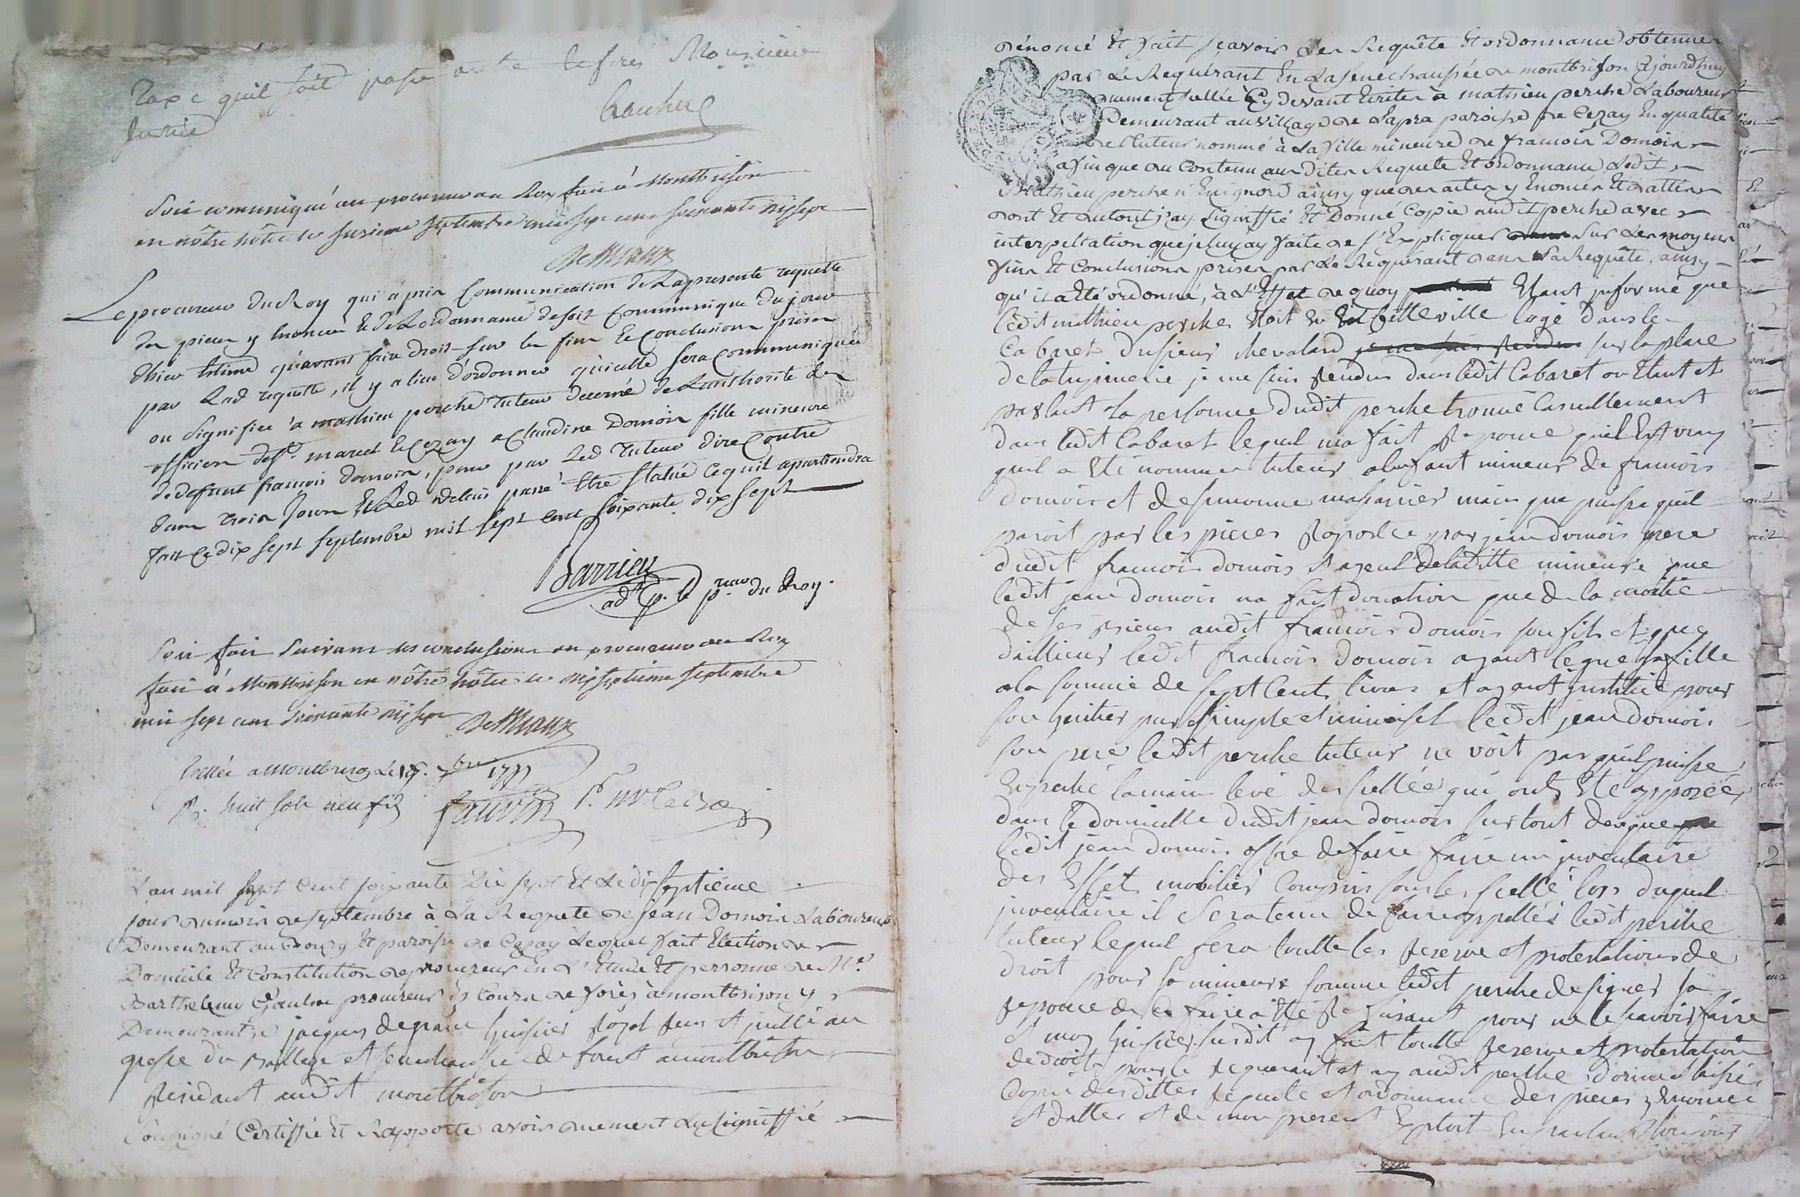 qu'il soit
justice
Soit communiqué au procureur du Roy fait à Montbrison
en nôtre hôtel ce seizieme septembre mil sept cent soixante dix sept
Le procureur du Roy qui a pris Communication de La presente requette
des pieces y enoncées et de Lordonnance de soit Communiqué du jour
d'hier Estime qu'avant faire droit sur les fins et Conclusions prises
par Lad requette, il y a lieu d'ordonner qu'icelle sera Communiquée
ou signifiée à mathieu perche tuteur decerné de L'authorité des
officiers de St. marcel et Cezay a Claudine Domois fille mineure
de deffunt francois Domois, pour par Led tuteur dire Contre
dans trois jours et Led delais passé Etre statué Ce qu'il apartiendra
fait Ce dix sept septembre mil sept Cent soixante dix sept
Barrieu
adt. p. le preur du Roy.
Soit fait suivant les conclusions du procureur du Roy
fait à Montbrison en nôtre hôtel ce dixseptieme septembre
mil sept cent soixante dix sept
Scellé a Montbrison Le 17. 7bre 1777
R. huit sols neuf d
L'an mil sept Cent soixante Dix sept Et Le dixseptieme
jour du mois de septembre à La Requete de jean Domois Laboureur
Demeurant au Bourg Et paroisse de Cezay Lequel fait Election de
Domicile Et Constitution de procureur En L'Etude Et personne de Me.
Barthelemy Gaulne procureur és Cours de forès à montbrison y
Demeurant, je jacques degraix huissier Royal reçu et jmmatriculé au
greffe du Bailliage et senechaussée de forest a montbrison
Residant audit montbrison
Soussigné Certiffie Et Rapporte avoir duement Lu signiffié
dénoncé Et fait sçavoir Les Requête Et ordonnance obtenues
par Le Requérant En La senechaussée de montbrison cejourdhuy
duement scellée Cy devant Ecrites à mathieu perche Laboureur
Demeurant au village de Lapra paroisse de Cezay En qualité
de tuteur nommé à La fille mineure de francois Domois
afin que du Contenu auxdites Requete Et ordonnance Ledit
Mathieu perche n'En ignore ainsy que des actes y Enoncés Et dattés
dont Et du tout j'ay signiffié Et Donné Copie audit perche avec
interpellation que je luy ay faite de s'Expliquer sur Les moyens
fins Et Conclusions prises par Le Requérant dans sa Requête, ainsy
qu'il a Eté ordonné, à L'Effet de quoy Etant jnformé que
ledit mathieu perche Etoit En cette ville logé dans le
Cabaret du sieur chevalard sur la place
de la grenerie je me suis rendu dans ledit Cabaret ou Etant et
parlant a la personne dudit perche trouvé Casuellement
dans ledit Cabaret lequel ma fait Reponce quil Est vray
quil a Eté nommé tuteur a l'enfant mineur de francois
domois et de simonne mais que puisqu'il
paroit par les pieces Raportée par jean domois pere
dudit francois domois et ayeul de ladite mineure que
ledit jean domois na fait donation que de la moitié
de ses biens audit francois domois son fils et que
dailleurs ledit francois domois ayant legué a sa fille
la somme de sept cents livres et ayant jnstitué pour
son heritier pur simple et universel ledit jean domois
son pere ledit perche tuteur ne voit pas quil puisse
Empeché la main levé des scellée qui ont Eté apposées
dans le domicille dudit jean domois surtout des que
ledit jean domois offre de faire faire un jnventaire
des Effets mobiliers Compris sous les scellé lors duquel
jnventaire il sera tenu de faire appellé ledit perche
tuteur lequel fera toutte les reserve et protestations de
droit pour sa mineure sommé ledit perche de signer sa
reponce de ce faire a Eté Refusant pour ne le scavoir faire
Et moy huissier susdit ay fait toutte reserve et protestation
de droit pour le requerant et ay audit perche donné et laissé
Copie desdittes requete et ordonnance des pieces y Enoncée
et dattée et de mon present Exploit En parlant